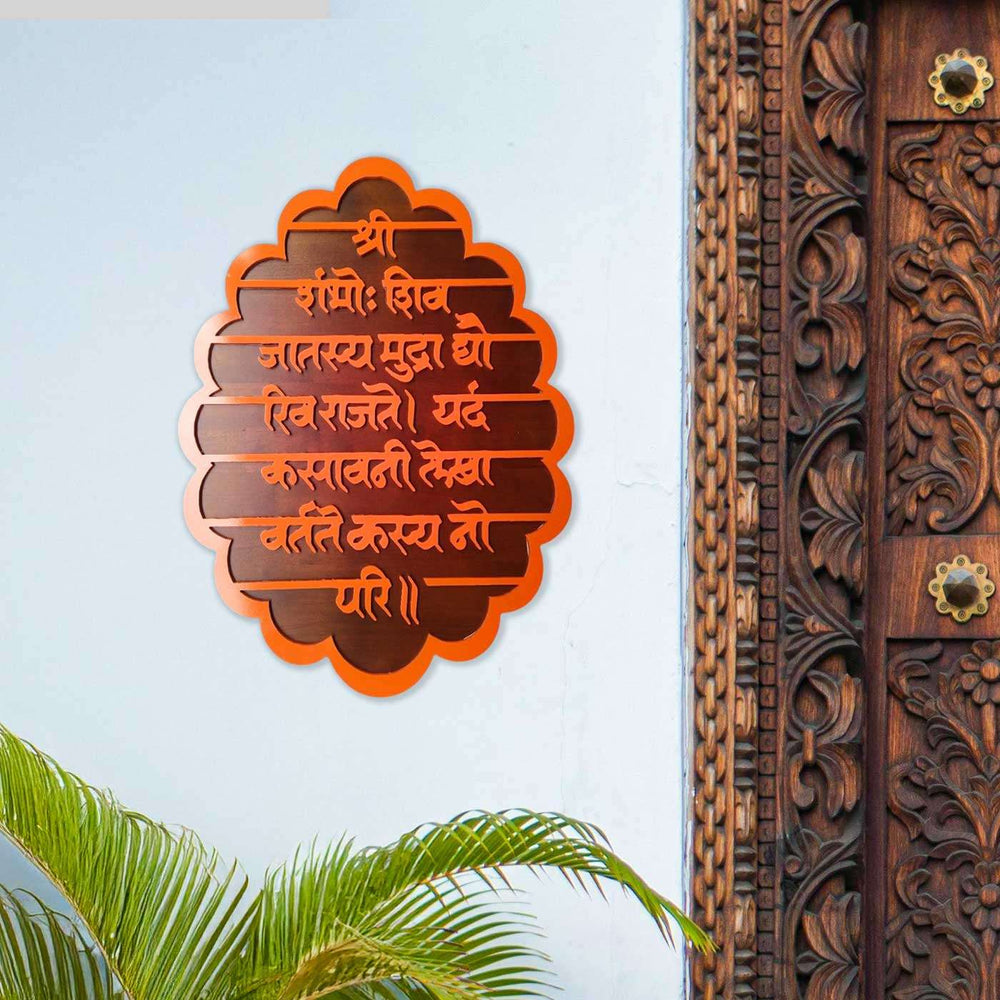 श्री
शंभोः शिव
जातस्य मुद्रा द्यौ
रिव राजते। यदं
लेखा
वर्तते कस्य नो
परि॥